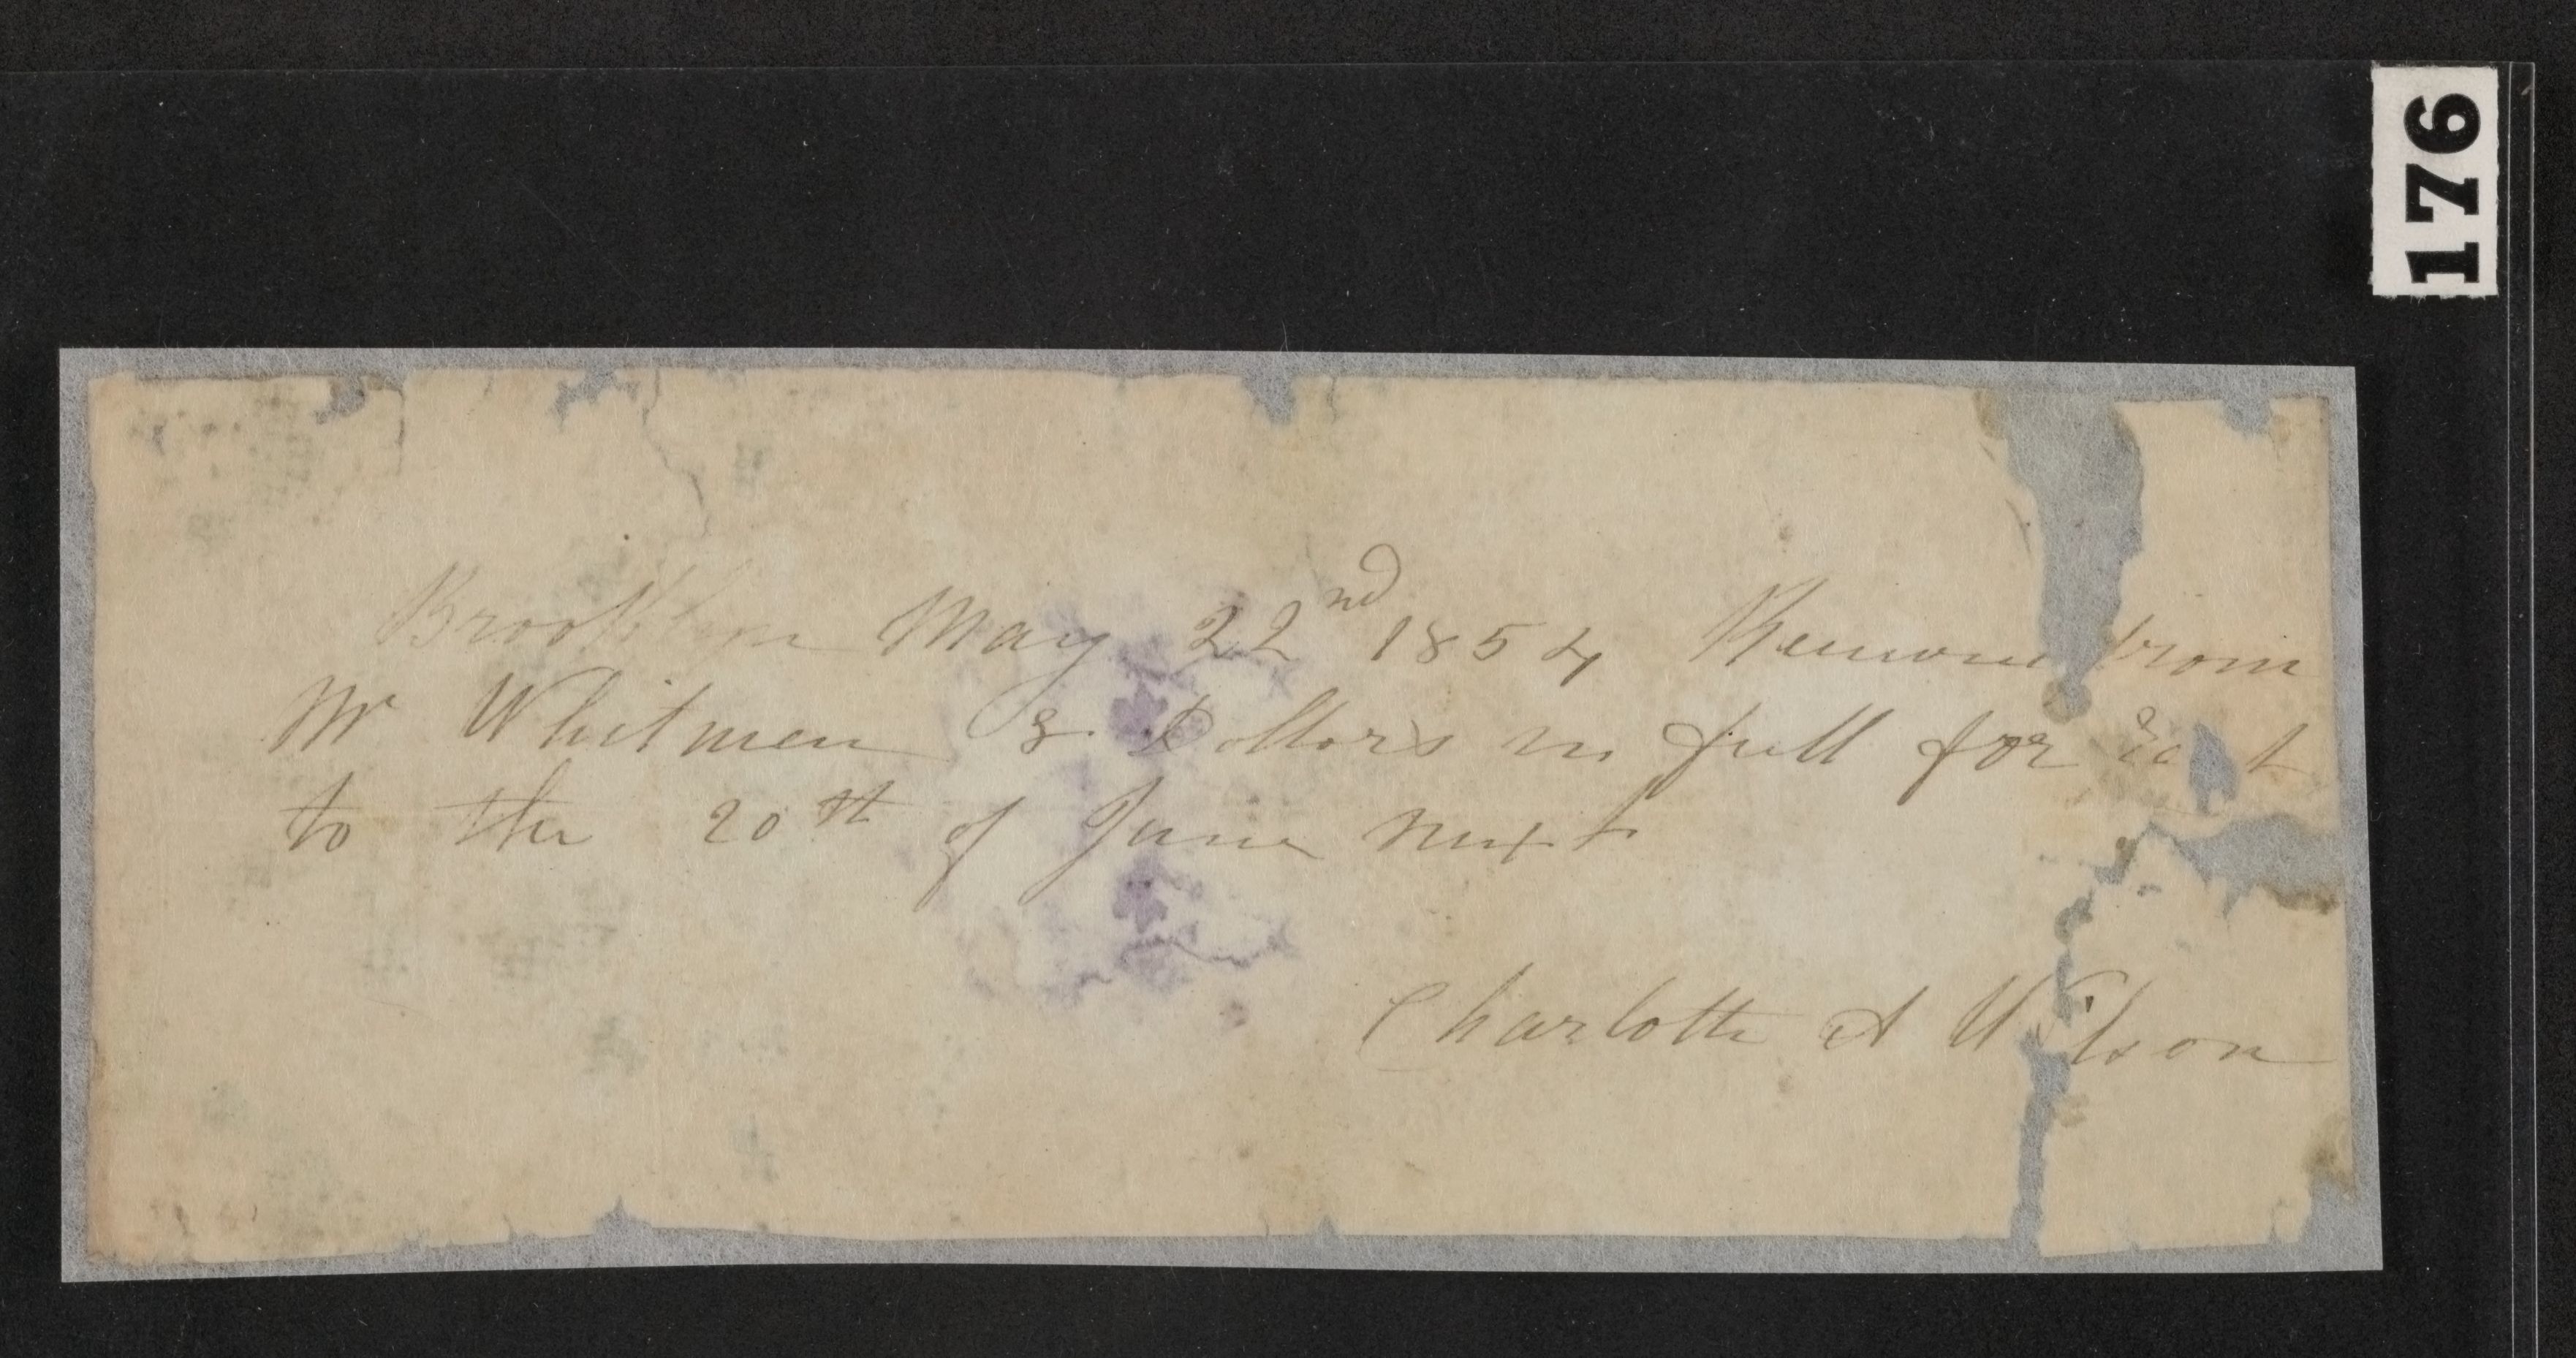 176
Brooklyn May 22nd 1854 from
Mr Whitman 8 Dollars in full for
to the 20th of June next
Charlotte A Wilson